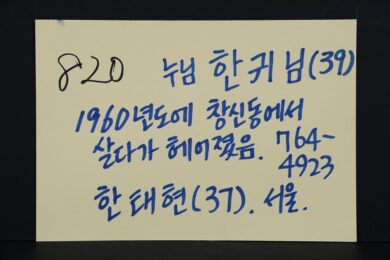 820 누님 한귀님(39)
1960년도에 창신동에서
살다가 헤어졌음. 764-
4923
한태현(37). 서울.